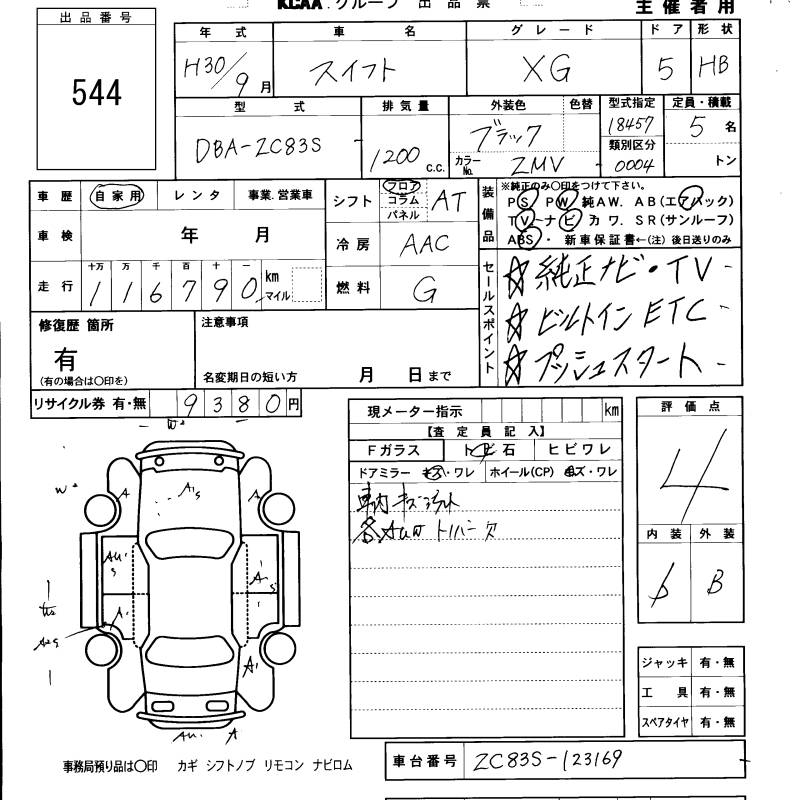 KCAA グループ 出 品 票
主催者用
出品番号
544
年 式 車 名 グ レ ー ド ド ア 形 状
H30/9月 スイフト XG 5 HB
型 式 排気量 外装色 色替 型式指定 定員・積載
DBA-ZC83S 1200 c.c. ブラック 18457 5 名
カラーNo. ZMV 類別区分 0004 トン
車 歴 自家用 レンタ 事業.営業車
シフト フロア コラム パネル AT
装備品 ※純正のみ〇印をつけて下さい。
PS PW 純AW. AB(エアバック)
TV-ナビ カワ. SR(サンルーフ)
ABS・ 新車保証書←(注) 後日送りのみ
車 検 年 月
冷 房 AAC
走 行 十万 万 千 百 十 一
116790 km マイル
燃 料 G
セールスポイント
☆ 純正ナビ・TV
☆ ビルトインETC
☆ プッシュスタート
修復歴 箇所
有
(有の場合は〇印を)
注意事項
名変期日の短い方 月 日まで
リサイクル券 有・無 9380円
現メーター指示 km
【査 定 員 記 入】
Fガラス トビ石 ヒビワレ
ドアミラー キズ・ワレ ホイール(CP) キズ・ワレ
車内キズ
評 価 点
4
内 装 外 装
B
W²
W²
A
A¹s
A
AU¹s
A¹s
A¹
A2s
A¹
AU¹
A
ジャッキ 有・無
工 具 有・無
スペアタイヤ 有・無
事務局預り品は〇印 カギ シフトノブ リモコン ナビロム
車台番号 ZC83S-123169